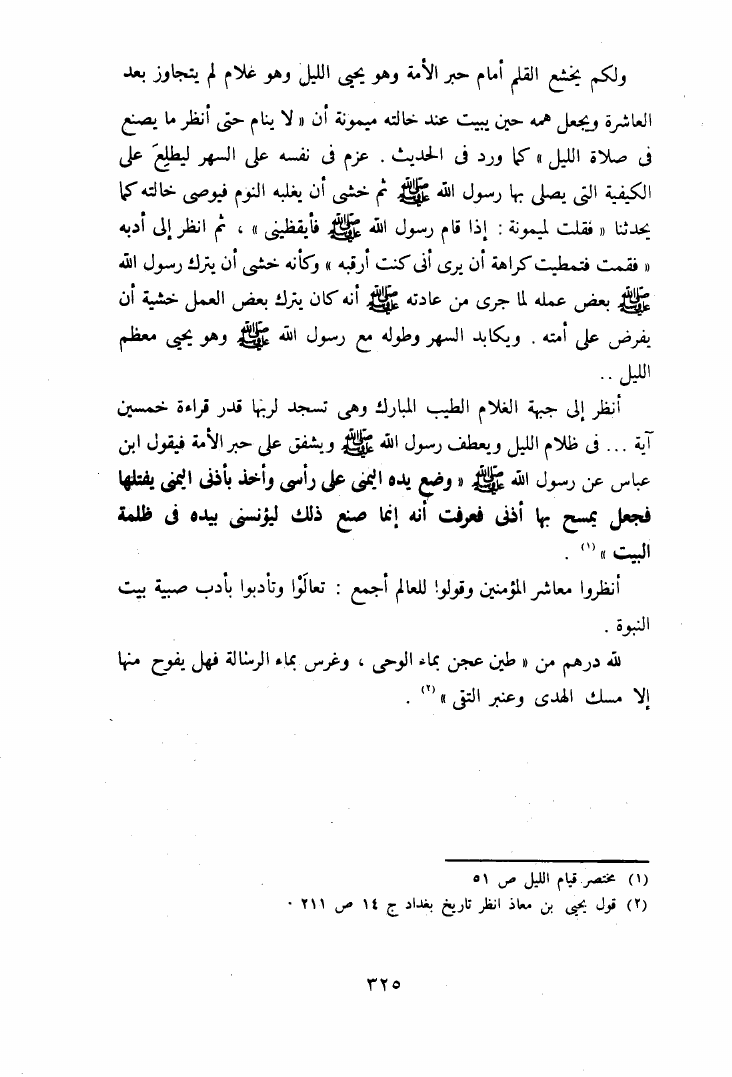 ولكم يخشع القلم أمام حبر الأمة وهو يحيى الليل وهو غلام لم يتجاوز بعد
العاشرة ويجعل همه حين يبيت عند خالته ميمونة أن « لا ينام حتى أنظر ما يصنع
فى صلاة الليل » كما ورد فى الحديث . عزم فى نفسه على السهر ليطلِعَ على
الكيفية التى يصلى بها رسول الله ﷺ ثم خشى أن يغلبه النوم فيوصى خالته كما
يحدثنا « فقلت لميمونة : إذا قام رسول الله ﷺ فأيقظينى » ، ثم انظر إلى أدبه
« فقمت فتمطيت كراهة أن يرى أنى كنت أرقبه » وكأنه خشى أن يترك رسول الله
ﷺ بعض عمله لما جرى من عادته ﷺ أنه كان يترك بعض العمل خشية أن
يفرض على أمته . ويكابد السهر وطوله مع رسول الله ﷺ وهو يحيى معظم
الليل ..
أنظر إلى جبهة الغلام الطيب المبارك وهى تسجد لربها قدر قراءة خمسين
آية ... فى ظلام الليل ويعطف رسول الله ﷺ ويشفق على حبر الأمة فيقول ابن
عباس عن رسول الله ﷺ « وضع يده اليمنى على رأسى وأخذ بأذنى اليمنى يفتلها
فجعل يمسح بها أذنى فعرفت أنه إنما صنع ذلك ليؤنسنى بيده فى ظلمة
البيت »(١) .
أنظروا معاشر المؤمنين وقولوا للعالم أجمع : تعالَوْا وتأدبوا بأدب صبية بيت
النبوة .
لله درهم من « طين عجن بماء الوحى ، وغرس بماء الرسالة فهل يفوح منها
إلا مسك الهدى وعنبر التقى »(٢) .
(١) مختصر قيام الليل ص ٥١
(٢) قول يحيى بن معاذ انظر تاريخ بغداد ج ١٤ ص ٢١١ .
٣٢٥